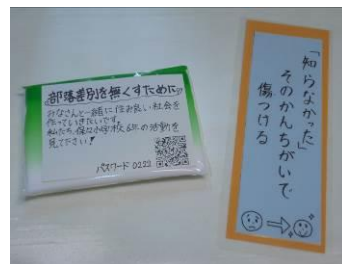 部落差別を無くすために
みなさんと一緒に住み良い社会を
作っていきたいです。
私たち、保々小学校6年の活動を
見て下さい!
パスワード 0222
「知らなかった」
そのかんちがいで
傷つける